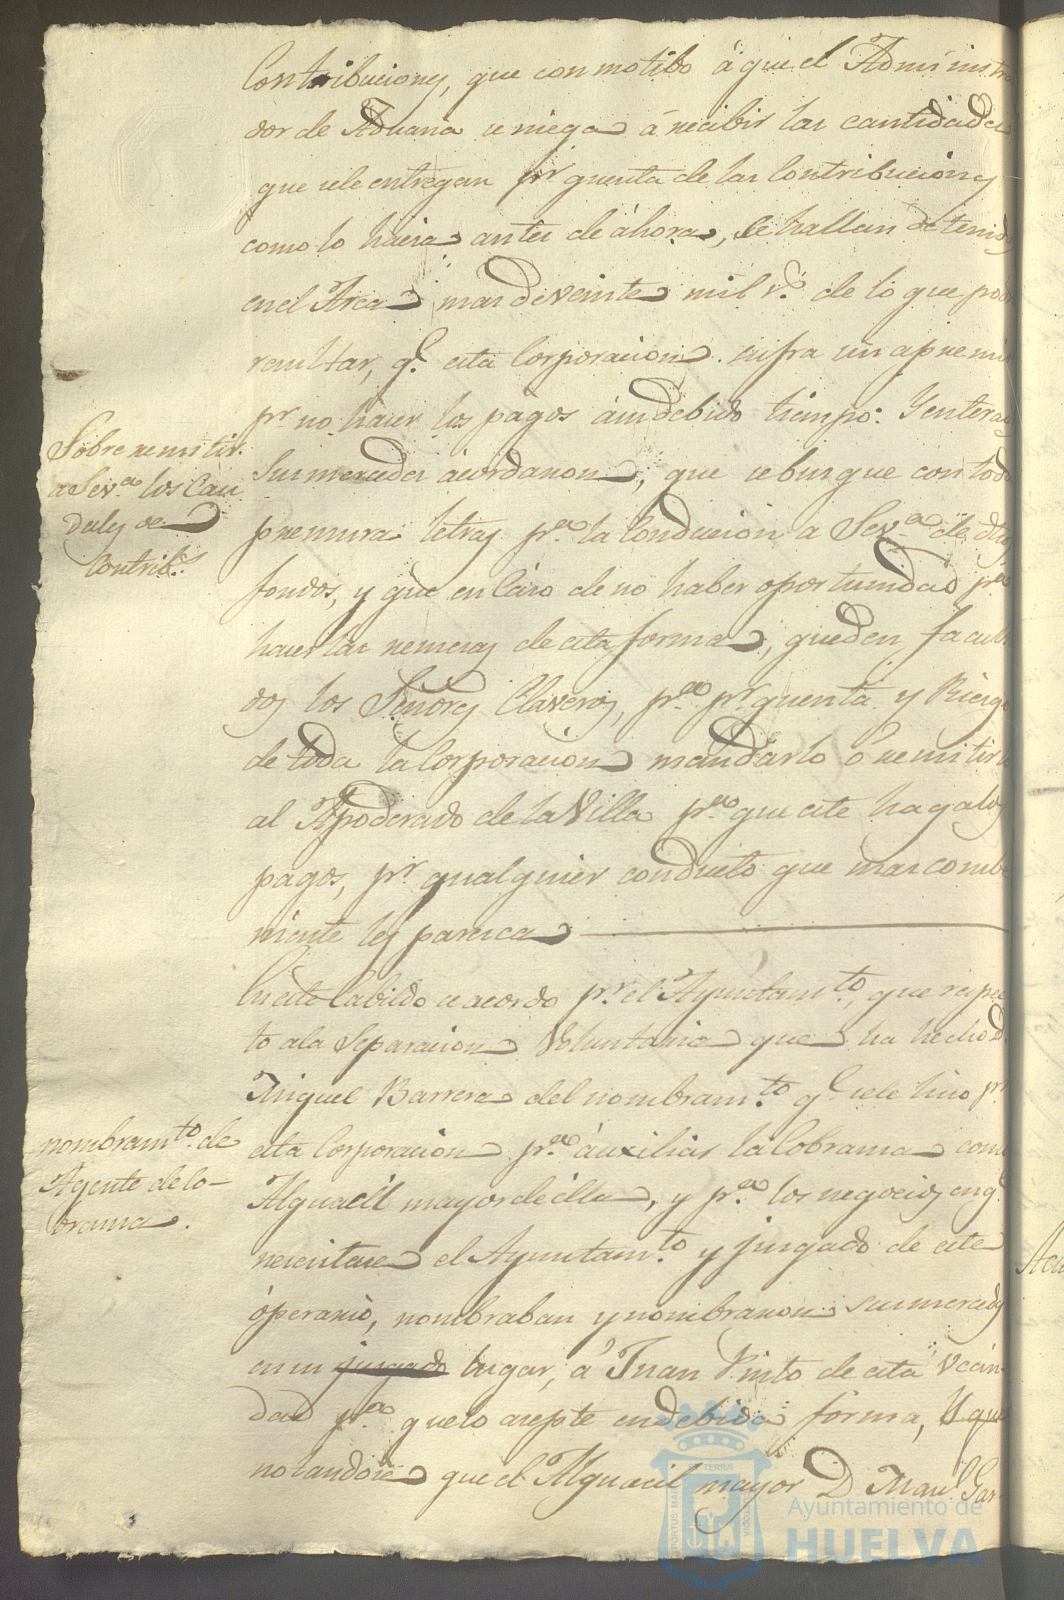 Contribuciones, que con motibo á que el Administra
dor de Aduana se niega á recibir las cantidades
que sele entregan pr quenta de las Contribuciones
como lo hacia antes de áhora, se hallan detenidos
en el Arca mas de veinte mil rs. de lo que podra
resultar, qe. esta Corporacion sufra un apremio
pr no hacer los pagos á su debido tiempo: Y enterados
Sus mercedes ácordaron, que se busque con toda
premura letras pra. la Conducion a Seva. de dhos
fondos, y que en Caso de no haber oportunidad pra
hacer las remesas de esta forma, queden faculta
dos los Señores Claveros, pra. pr. quenta y Riesgo
de toda la Corporacion mandarlo ó remitirlo
al Apoderado de la Villa pra. que este haga los
pagos, pr. qualquier conducto que mas combe
niente les paresca
Sobre remitir
a Seva. los Cau
dales de
Contribs.
En este Cabildo se acordo pr. el Ayuntamto., que respec
to ala Separacion Voluntaria que ha hecho Dn
Miguel Barrera del nombramto. qe. sele hiso pr
esta Corporacion pra. áuxiliar la Cobransa como
Alguacil mayor de ella, y pra. los negocios en qe.
nesesitase el Ayuntamto. y jusgado de este
óperario, nombraban y nombraron sus mercedes
en su jusgado lugar, á Juan Pinto de esta Vecin
dad pra. que lo asepte en debida forma, Y que
notandose que el Alguacil mayor D Manl. Gar-
nombramto. de
Agente de co-
bransa.
Ayuntamiento de
HUELVA